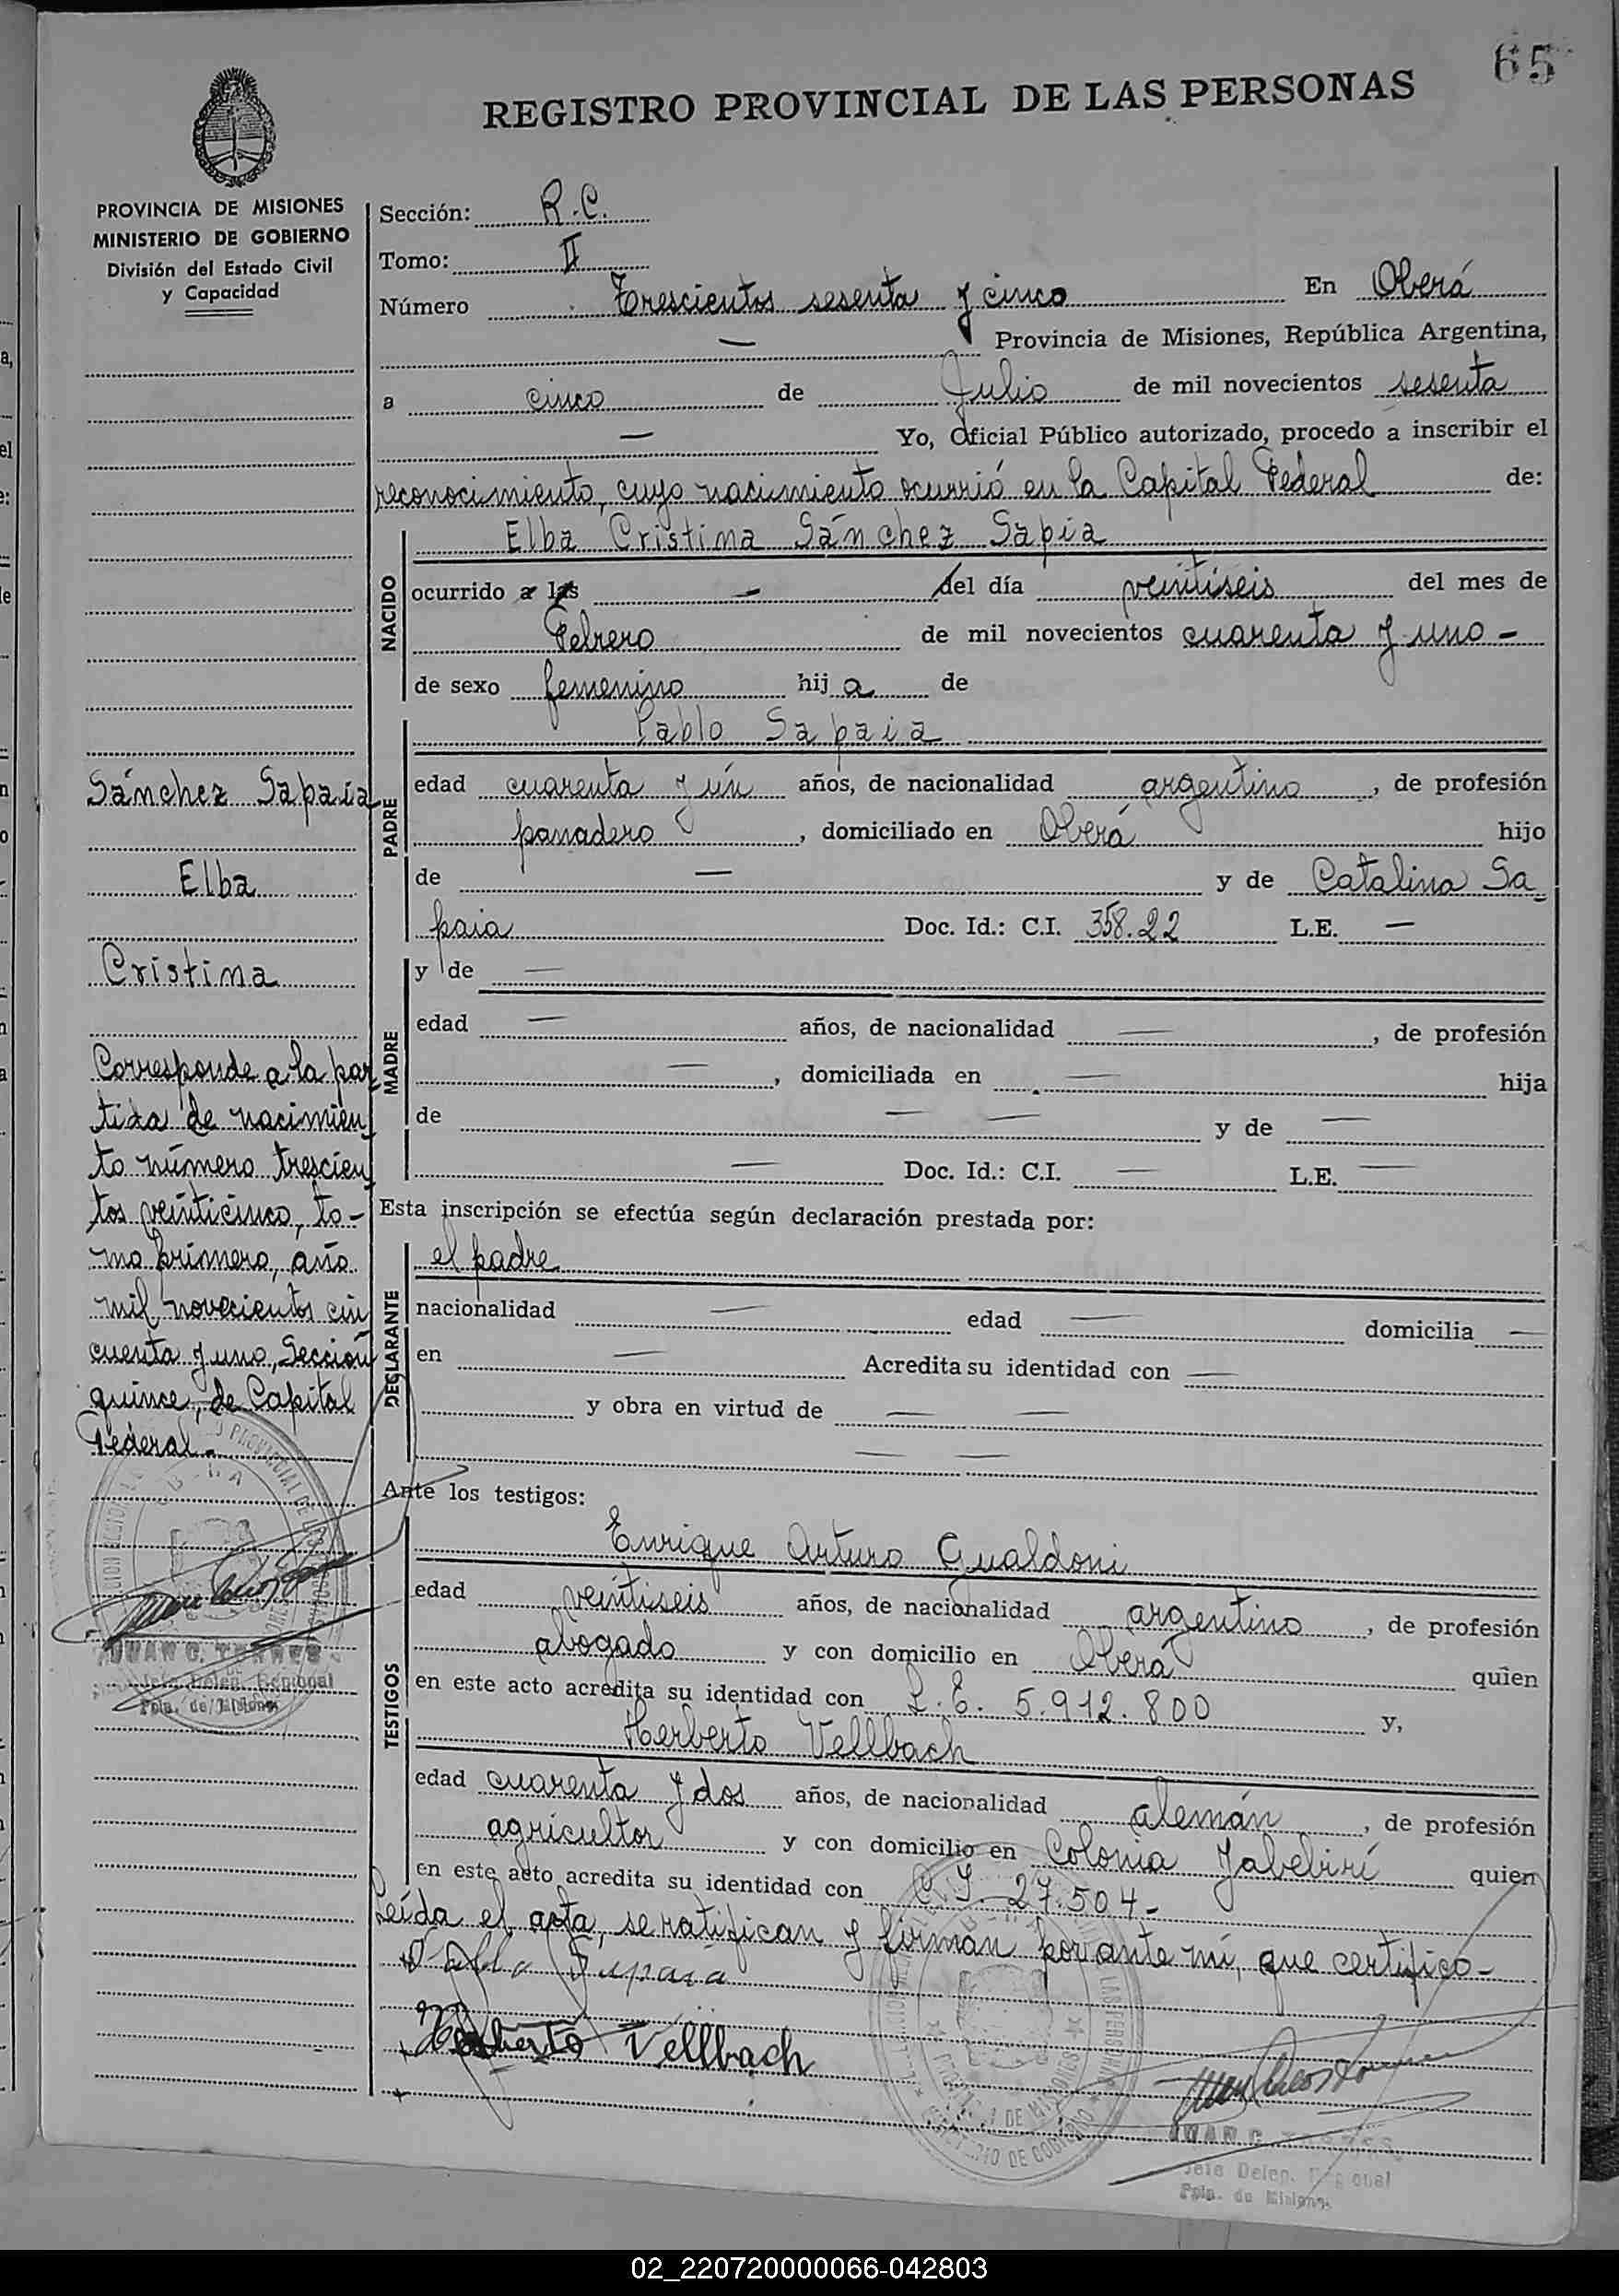 65
REGISTRO PROVINCIAL DE LAS PERSONAS
PROVINCIA DE MISIONES
MINISTERIO DE GOBIERNO
División del Estado Civil
y Capacidad
Sección: R.C.
Tomo: II
Número Trescientos sesenta y cinco En Oberá
— Provincia de Misiones, República Argentina,
a cinco de Julio de mil novecientos sesenta
— Yo, Oficial Público autorizado, procedo a inscribir el
reconocimiento, cuyo nacimiento ocurrió en la Capital Federal de:
NACIDO
Elba Cristina Sánchez Sapia
ocurrido a las — del día veintiseis del mes de
Febrero de mil novecientos cuarenta y uno -
de sexo femenino hij a de
PADRE
Pablo Sapaia
edad cuarenta y ún años, de nacionalidad argentino, de profesión
panadero, domiciliado en Oberá hijo
de — y de Catalina Sa-
paia Doc. Id.: C.I. 358.22 L.E. —
MADRE
y de —
edad — años, de nacionalidad —, de profesión
—, domiciliada en — hija
de — — y de —
— Doc. Id.: C.I. — L.E. —
Esta inscripción se efectúa según declaración prestada por:
DECLARANTE
el padre
nacionalidad — edad — domicilia —
en — Acredita su identidad con —
y obra en virtud de — —
— —
Ante los testigos:
TESTIGOS
Enrique Arturo Gualdoni
edad veintiseis años, de nacionalidad argentino, de profesión
abogado y con domicilio en Oberá quien
en este acto acredita su identidad con L.E. 5.912.800 y,
Herberto Vellbach
edad cuarenta y dos años, de nacionalidad alemán, de profesión
agricultor y con domicilio en Colonia Yabebirí quien
en este acto acredita su identidad con C.I. 27.504-
Leída el acta, se ratifican y firman por ante mí, que certifico-
Pablo Sapaia
Herberto Vellbach
JUAN C. TORRES
Jefe Deleg. Regional
Pcia. de Misiones
Sánchez Sapaia
Elba
Cristina
Corresponde a la par-
tida de nacimien-
to número trescien-
tos veinticinco, to-
mo primero, año
mil novecientos cin
cuenta y uno, Sección
quince, de Capital
Federal.-
JUAN C. TORRES
Jefe Deleg. Regional
Pcia. de Misiones
02_220720000066-042803